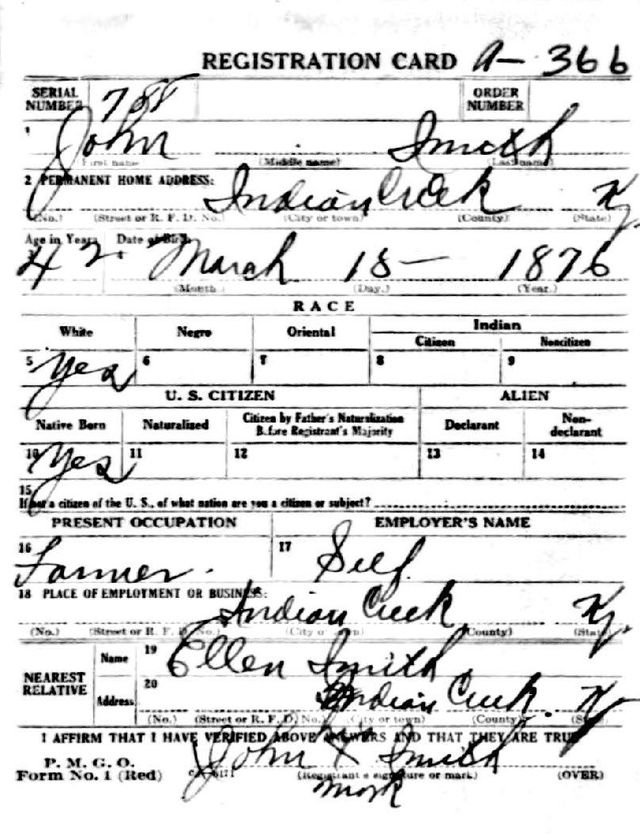 REGISTRATION CARD A-366
SERIAL NUMBER 788 ORDER NUMBER
1 John Smith
First name (Middle name) (Last name)
2 PERMANENT HOME ADDRESS: Indian Creek Ky.
(No.) (Street or R. F. D. No.) (City or town) (County) (State)
Age in Years Date of Birth
42. March 18- 1876
(Month.) (Day.) (Year.)
RACE
White Negro Oriental Indian
Citizen Noncitizen
5 Yes 6 7 8 9
U. S. CITIZEN ALIEN
Native Born Naturalized Citizen by Father's Naturalization Before Registrant's Majority Declarant Non-declarant
10 Yes 11 12 13 14
15
If not a citizen of the U. S., of what nation are you a citizen or subject?
PRESENT OCCUPATION EMPLOYER'S NAME
16 Farmer. 17 Self
18 PLACE OF EMPLOYMENT OR BUSINESS: Indian Creek Ky.
(No.) (Street or R. F. D. No.) (City or town) (County) (State)
NEAREST RELATIVE Name 19 Ellen Smith
Address 20 Indian Creek. Ky
(No.) (Street or R. F. D. No.) (City or town) (County) (State)
I AFFIRM THAT I HAVE VERIFIED ABOVE ANSWERS AND THAT THEY ARE TRUE
P. M. G. O.
Form No. 1 (Red) John X Smith
(Registrant's signature or mark) (OVER)
mark